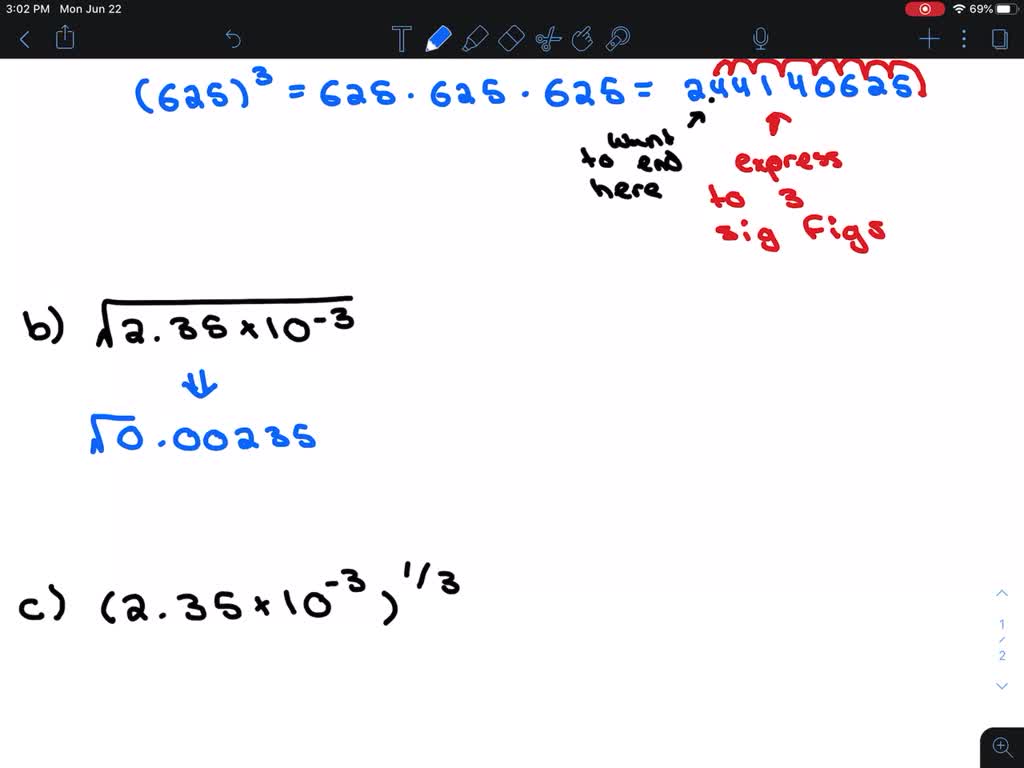 3:02 PM Mon Jun 22
69%
(625)³ = 625 · 625 · 625 = 2.44140625
want
to end
here
express
to 3
sig figs
b) √2.35 × 10⁻³
√0.00235
c) (2.35 × 10⁻³)^1/3
1
/
2